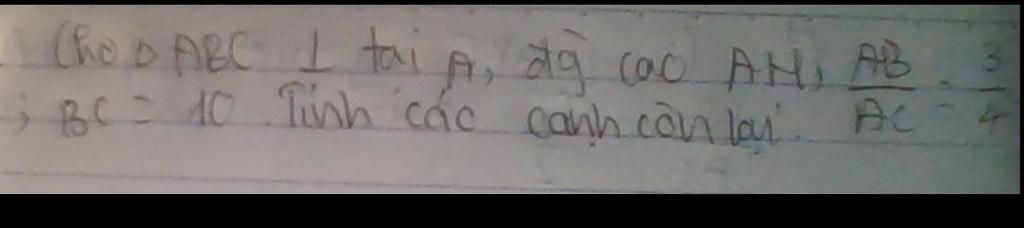 Cho Δ ABC ⊥ tại A, đg cao AH, AB/AC = 3/4
; BC = 10. Tính các cạnh còn lại.